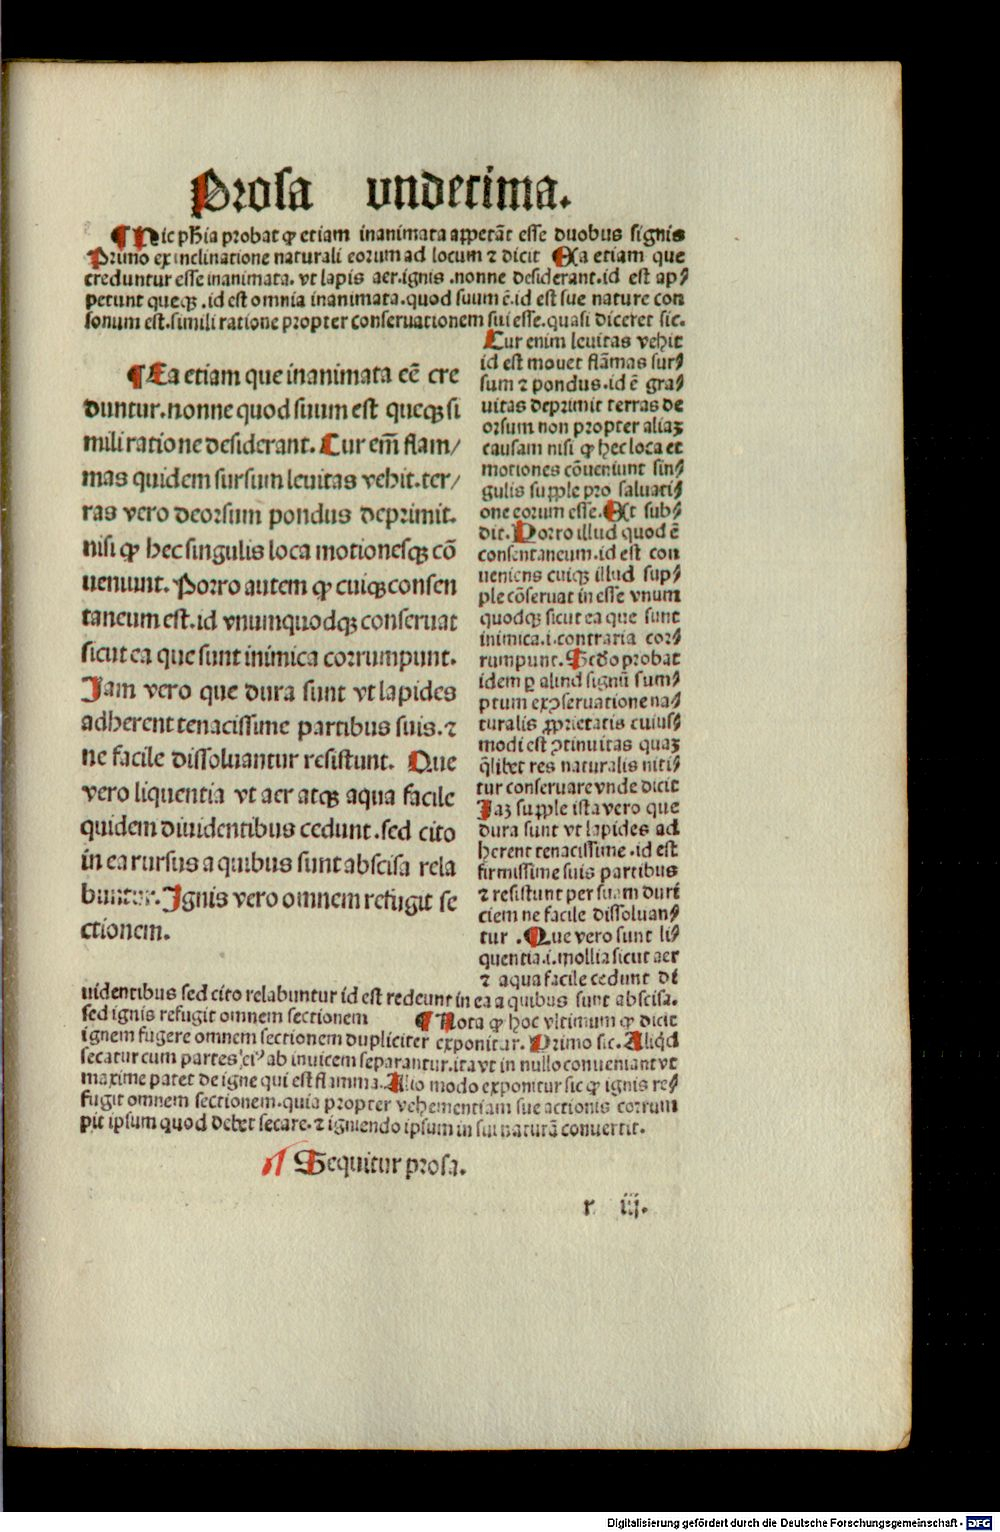 Prosa undecima.
¶ Hic phīa probat ꝙ etiam inanimata appetāt esse duobus signis
Primo ex inclinatione naturali eorum ad locum ⁊ dicit Ea etiam que
creduntur esse inanimata. vt lapis aer.ignis.nonne desiderant.id est ap⸗
petunt queqꝫ.id est omnia inanimata.quod suum ē.id est sue nature con
sonum est.simili ratione propter conseruationem sui esse.quasi diceret sic.
¶ Ea etiam que inanimata eē cre
duntur.nonne quod suum est queqꝫ si
mili ratione desiderant. Cur em̄ flam/
mas quidem sursum leuitas vehit.ter/
ras vero deorsum pondus deprimit.
nisi ꝙ hec singulis loca motionesqꝫ cō
ueniunt. Porro autem ꝙ cuiqꝫ consen
taneum est.id vnumquodqꝫ conseruat
sicut ea que sunt inimica corrumpunt.
Jam vero que dura sunt vt lapides
adherent tenacissime partibus suis.⁊
ne facile dissoluantur resistunt. Que
vero liquentia vt aer atqꝫ aqua facile
quidem diuidentibus cedunt.sed cito
in ea rursus a quibus sunt abscisa rela
buntur. Ignis vero omnem refugit se
ctionem.
Cur enim leuitas vehit
id est mouet flāmas sur⸗
sum ⁊ pondus.id ē gra⸗
uitas deprimit terras de
orsum non propter aliaꝫ
causam nisi ꝙ hec loca et
motiones cōueniunt sin⸗
gulis supple pro saluati⸗
one eorum esse. Et sub⸗
dit. Porro illud quod ē
consentaneum.id est con
ueniens cuiqꝫ illud sup⸗
ple cōseruat in esse vnum
quodqꝫ sicut ea que sunt
inimica.i.contraria cor⸗
rumpunt. Scdo probat
idem ꝑ aliud signū sum⸗
ptum ex ꝯseruatione na⸗
turalis ꝓprietatis cuius⸗
modi est ꝯtinuitas quaꝫ
q̄libet res naturalis niti⸗
tur conseruare vnde dicit
Jaꝫ supple ista vero que
dura sunt vt lapides ad
herent tenacissime.id est
firmissime suis partibus
⁊ resistunt per suam duri
ciem ne facile dissoluan⸗
tur. Que vero sunt li⸗
quentia.i.mollia sicut aer
⁊ aqua facile cedunt di
uidentibus sed cito relabuntur id est redeunt in ea a quibus sunt abscisa.
sed ignis refugit omnem sectionem ¶ Nota ꝙ hoc vltimum ꝙ dicit
ignem fugere omnem sectionem dupliciter exponitur. Primo sic. Aliqd̄
secatur cum partes eiꝰ ab inuicem separantur.ita vt in nullo conueniant vt
maxime patet de igne qui est flamma. Alio modo exponitur sic ꝙ ignis re⸗
fugit omnem sectionem.quia propter vehementiam sue actionis corrum
pit ipsum quod debet secare.⁊ igniendo ipsum in sui naturā conuertit.
¶ Sequitur prosa.
r iij.
Digitalisierung gefördert durch die Deutsche Forschungsgemeinschaft - DFG